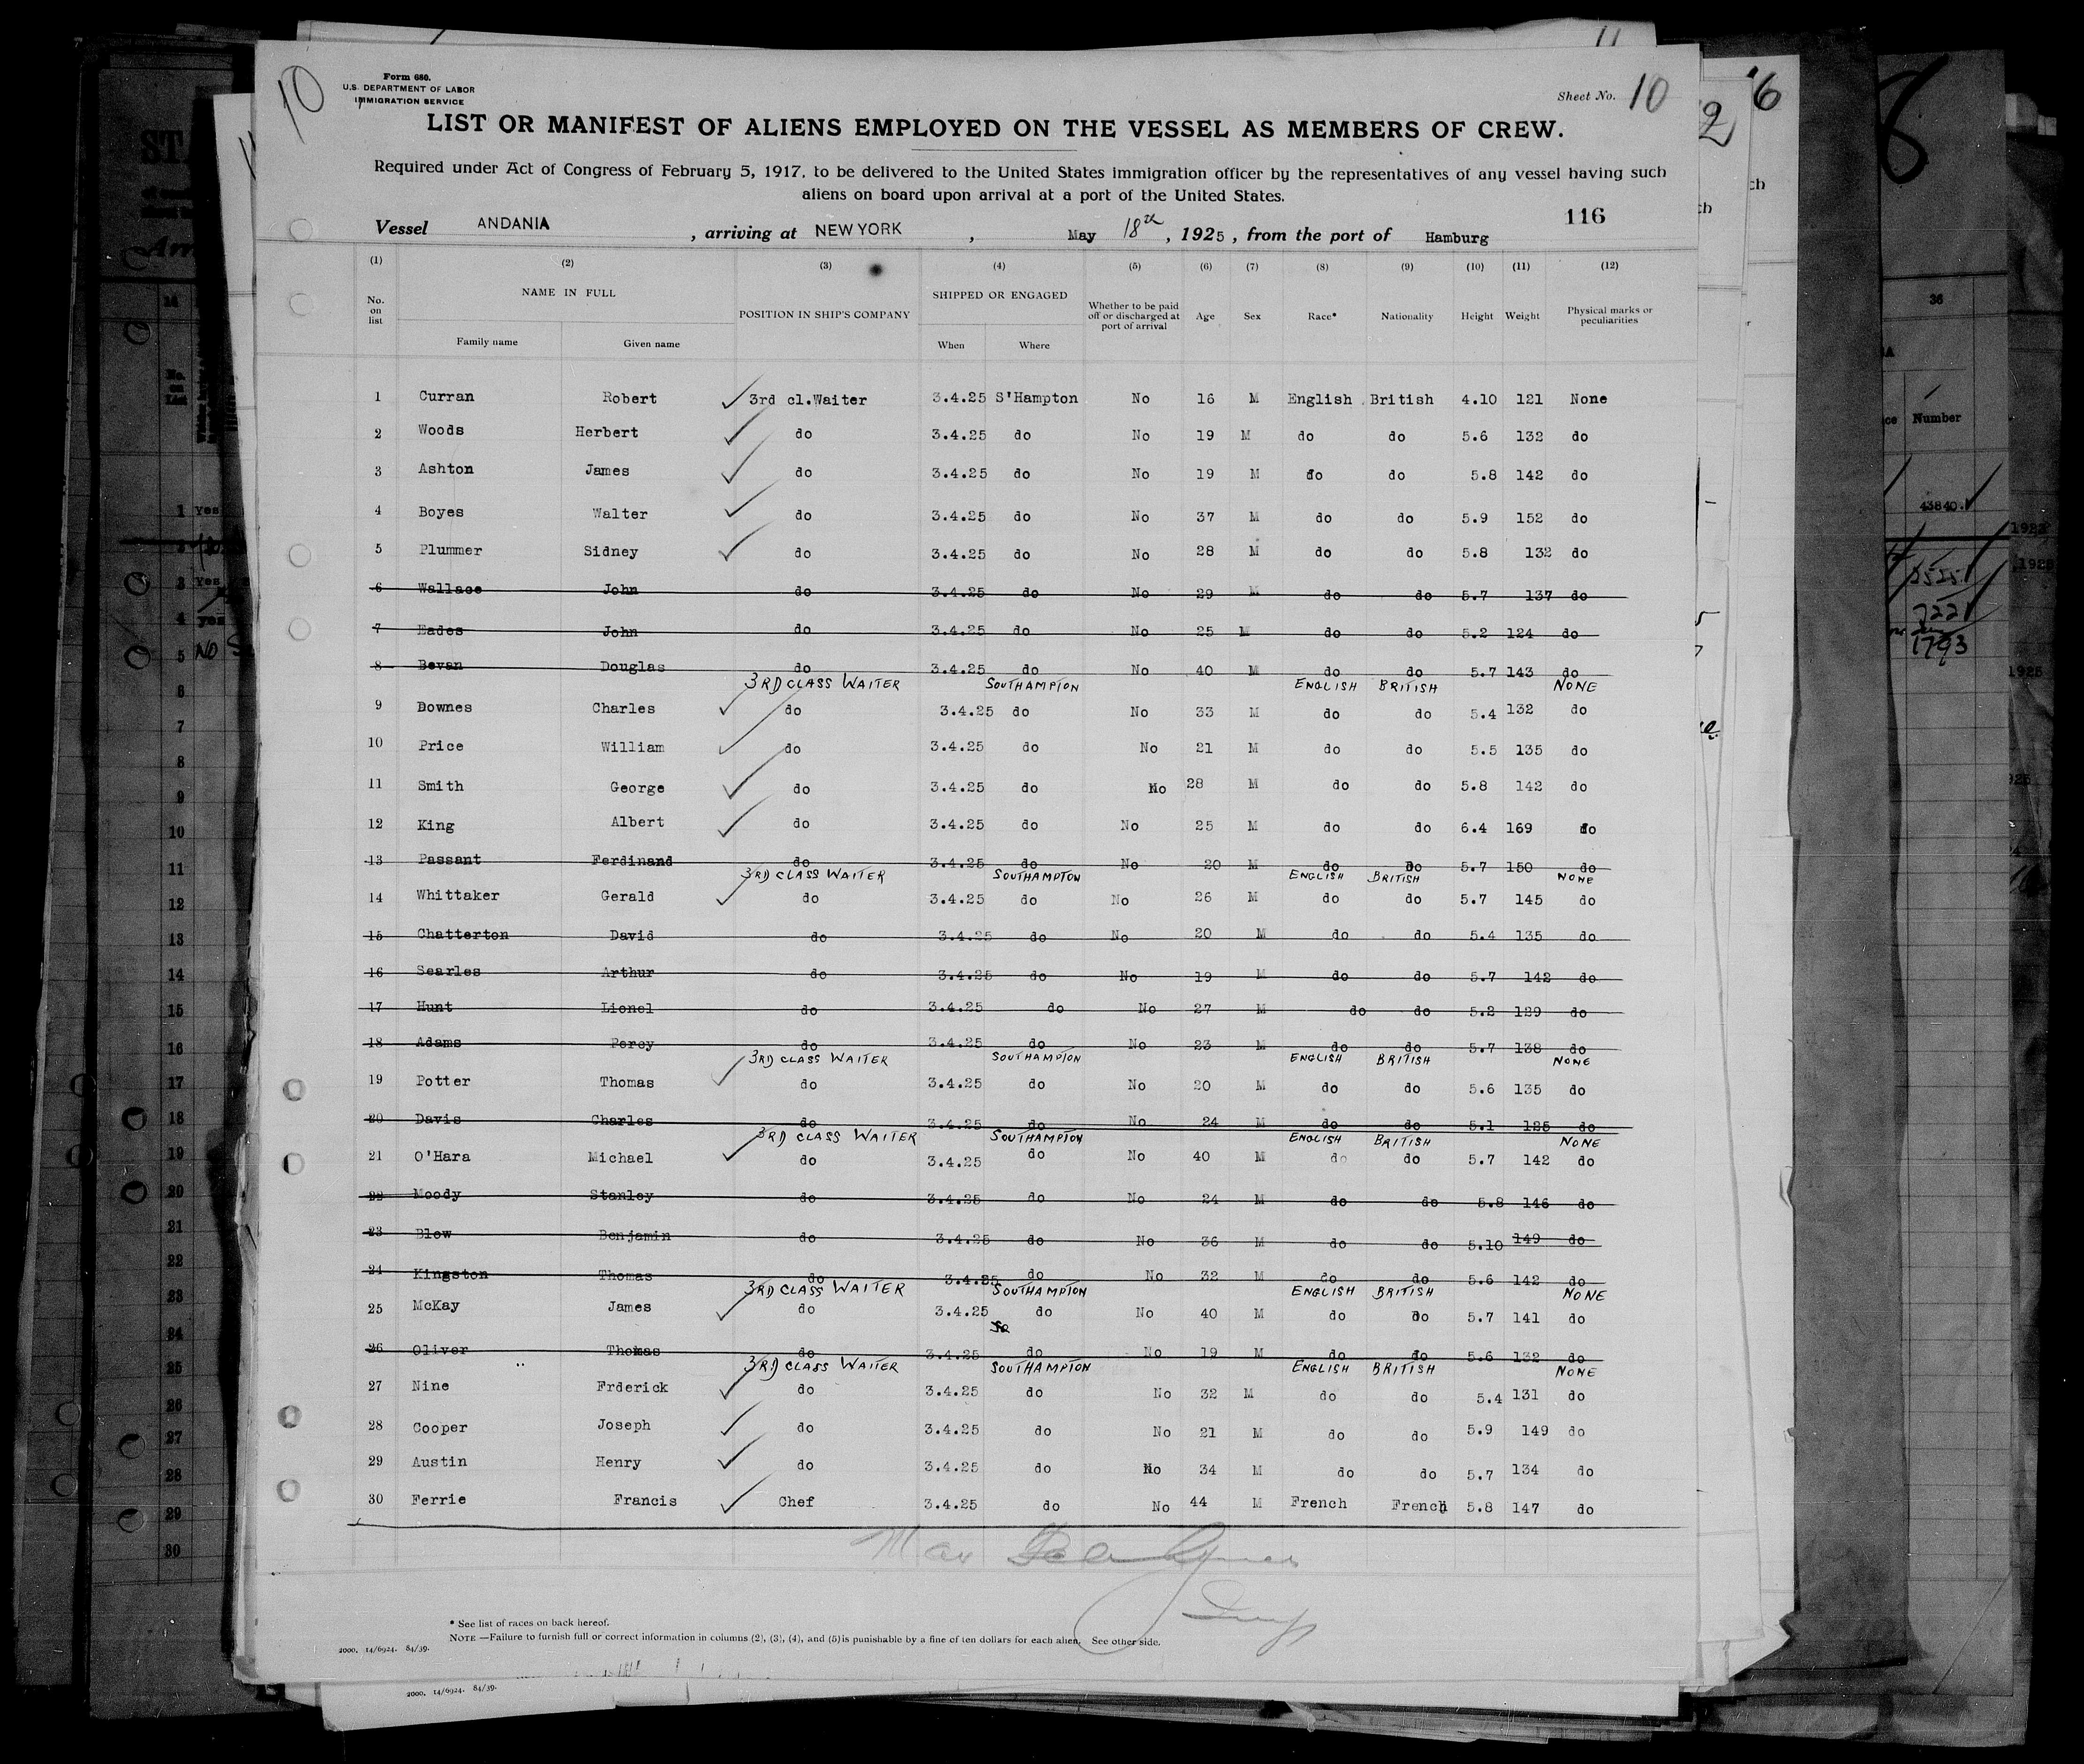 10
Form 680.
U.S. DEPARTMENT OF LABOR
IMMIGRATION SERVICE
Sheet No. 10
LIST OR MANIFEST OF ALIENS EMPLOYED ON THE VESSEL AS MEMBERS OF CREW.
Required under Act of Congress of February 5, 1917, to be delivered to the United States immigration officer by the representatives of any vessel having such
aliens on board upon arrival at a port of the United States.
116
Vessel ANDANIA , arriving at NEW YORK , May 18th , 1925 , from the port of Hamburg
(1) (2) (3) (4) (5) (6) (7) (8) (9) (10) (11) (12)
No. on list NAME IN FULL POSITION IN SHIP'S COMPANY SHIPPED OR ENGAGED Whether to be paid off or discharged at port of arrival Age Sex Race* Nationality Height Weight Physical marks or peculiarities
Family name Given name When Where
1 Curran Robert 3rd cl.Waiter 3.4.25 S'Hampton No 16 M English British 4.10 121 None
2 Woods Herbert do 3.4.25 do No 19 M do do 5.6 132 do
3 Ashton James do 3.4.25 do No 19 M do do 5.8 142 do
4 Boyes Walter do 3.4.25 do No 37 M do do 5.9 152 do
5 Plummer Sidney do 3.4.25 do No 28 M do do 5.8 132 do
6 Wallace John do 3.4.25 do No 29 M do do 5.7 137 do
7 Eades John do 3.4.25 do No 25 M do do 5.2 124 do
8 Bevan Douglas do 3.4.25 do No 40 M do do 5.7 143 do
3RD CLASS WAITER SOUTHAMPTON ENGLISH BRITISH NONE
9 Downes Charles do 3.4.25 do No 33 M do do 5.4 132 do
10 Price William do 3.4.25 do No 21 M do do 5.5 135 do
11 Smith George do 3.4.25 do No 28 M do do 5.8 142 do
12 King Albert do 3.4.25 do No 25 M do do 6.4 169 do
13 Passant Ferdinand do 3.4.25 do No 20 M do Do 5.7 150 do
3RD CLASS WAITER SOUTHAMPTON ENGLISH BRITISH NONE
14 Whittaker Gerald do 3.4.25 do No 26 M do do 5.7 145 do
15 Chatterton David do 3.4.25 do No 20 M do do 5.4 135 do
16 Searles Arthur do 3.4.25 do No 19 M do do 5.7 142 do
17 Hunt Lionel do 3.4.25 do No 27 M do do 5.2 129 do
18 Adams Percy do 3.4.25 do No 23 M do do 5.7 138 do
3RD CLASS WAITER SOUTHAMPTON ENGLISH BRITISH NONE
19 Potter Thomas do 3.4.25 do No 20 M do do 5.6 135 do
20 Davis Charles do 3.4.25 do No 24 M do do 5.1 125 do
3RD CLASS WAITER SOUTHAMPTON ENGLISH BRITISH NONE
21 O'Hara Michael do 3.4.25 do No 40 M do do 5.7 142 do
22 Moody Stanley do 3.4.25 do No 24 M do do 5.8 146 do
23 Blow Benjamin do 3.4.25 do No 36 M do do 5.10 149 do
24 Kingston Thomas do 3.4.25 do No 32 M do do 5.6 142 do
3RD CLASS WAITER SOUTHAMPTON ENGLISH BRITISH NONE
25 McKay James do 3.4.25 do No 40 M do do 5.7 141 do
26 Oliver Thomas do 3.4.25 do No 19 M do do 5.6 132 do
3RD CLASS WAITER SOUTHAMPTON ENGLISH BRITISH NONE
27 Nine Frderick do 3.4.25 do No 32 M do do 5.4 131 do
28 Cooper Joseph do 3.4.25 do No 21 M do do 5.9 149 do
29 Austin Henry do 3.4.25 do No 34 M do do 5.7 134 do
30 Ferrie Francis Chef 3.4.25 do No 44 M French French 5.8 147 do
* See list of races on back hereof.
NOTE.—Failure to furnish full or correct information in columns (2), (3), (4), and (5) is punishable by a fine of ten dollars for each alien. See other side.
2000. 14/6924. 84/39.
2000. 14/6924. 84/39.
6
2
8
36
Number
43840
1793